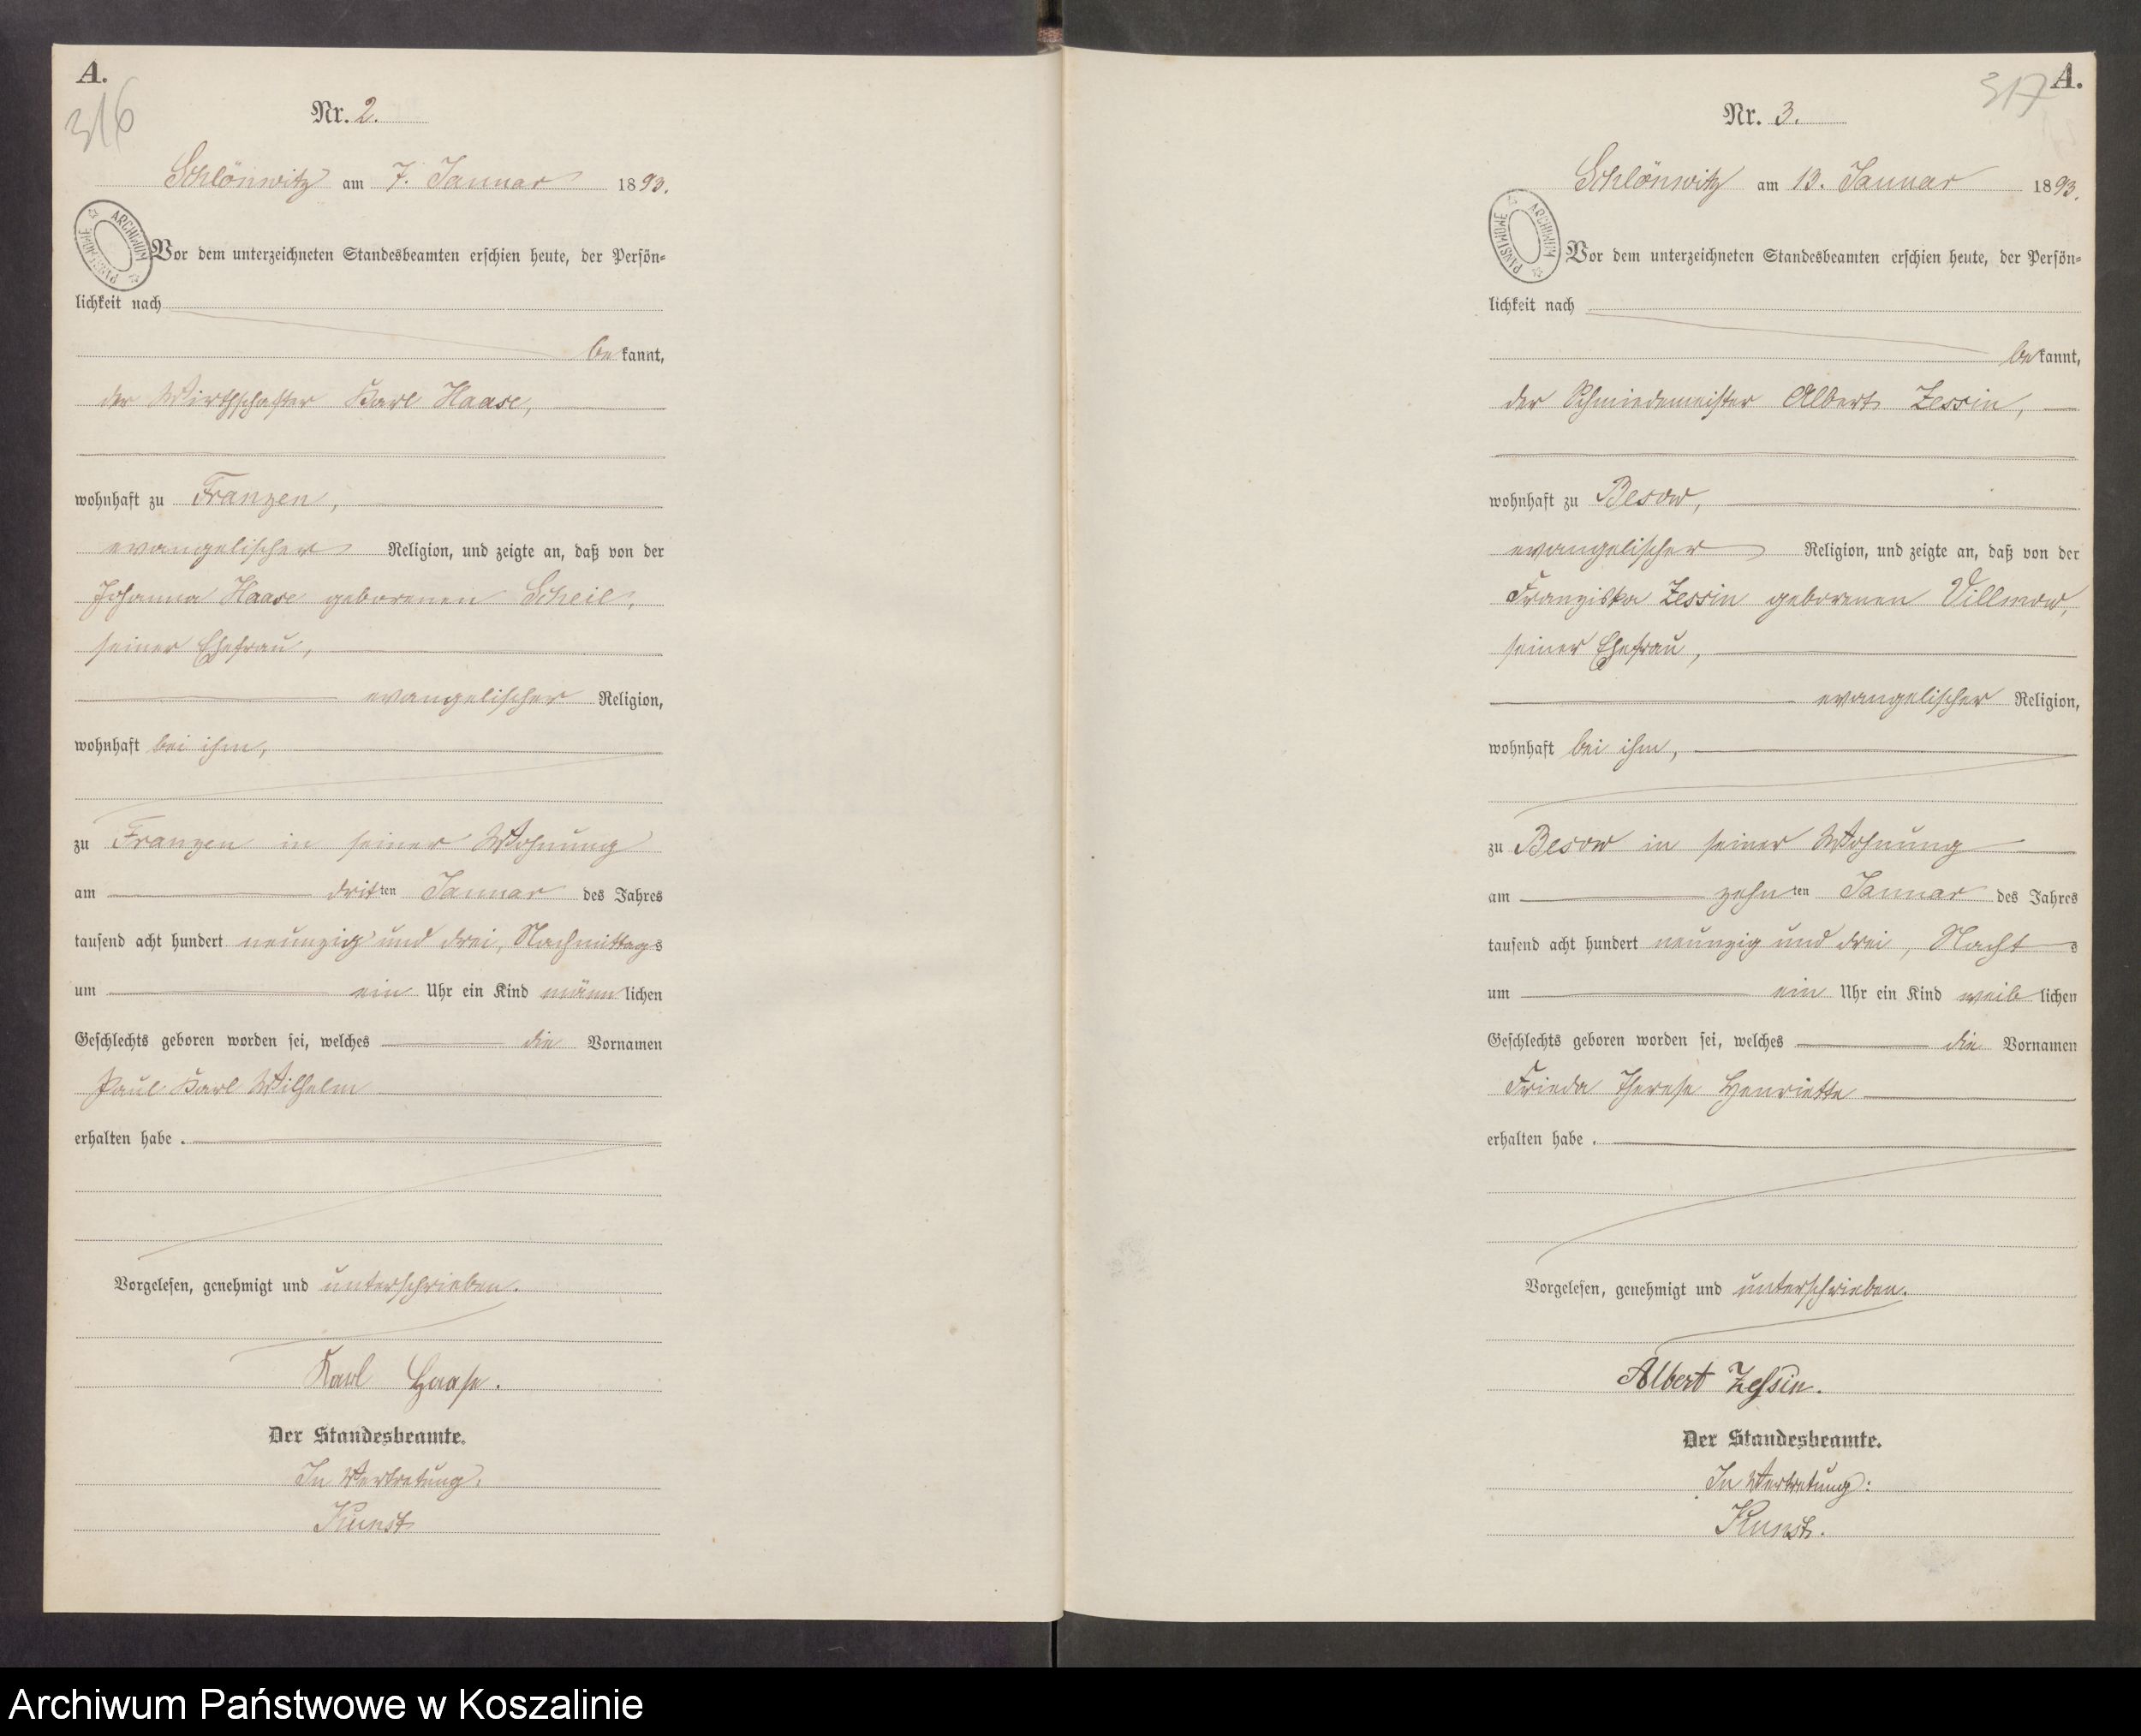 A.
316
Nr. 2.
Schlönwitz am 7. Januar 1893.
ARCHIWUM PAŃSTWOWE
Vor dem unterzeichneten Standesbeamten erschien heute, der Persön=
lichkeit nach
bekannt,
der Wirthschafter Karl Haase,
wohnhaft zu Franzen,
evangelischer Religion, und zeigte an, daß von der
Johanna Haase geborenen Scheil,
seiner Ehefrau,
evangelischer Religion,
wohnhaft bei ihm,
zu Franzen in seiner Wohnung
am dritten Januar des Jahres
tausend acht hundert neunzig und drei, Nachmittags
um ein Uhr ein Kind männlichen
Geschlechts geboren worden sei, welches die Vornamen
Paul Karl Wilhelm
erhalten habe.
Vorgelesen, genehmigt und unterschrieben.
Karl Haase.
Der Standesbeamte.
In Vertretung:
Kunst
A.
317
Nr. 3.
Schlönwitz am 13. Januar 1893.
ARCHIWUM PAŃSTWOWE
Vor dem unterzeichneten Standesbeamten erschien heute, der Persön=
lichkeit nach
bekannt,
der Schmiedemeister Albert Zessin,
wohnhaft zu Besow,
evangelischer Religion, und zeigte an, daß von der
Franziska Zessin geborenen Villmow,
seiner Ehefrau,
evangelischer Religion,
wohnhaft bei ihm,
zu Besow in seiner Wohnung
am zehnten Januar des Jahres
tausend acht hundert neunzig und drei, Nachts
um ein Uhr ein Kind weiblichen
Geschlechts geboren worden sei, welches die Vornamen
Frieda Therese Henriette
erhalten habe.
Vorgelesen, genehmigt und unterschrieben.
Albert Zessin.
Der Standesbeamte.
In Vertretung:
Kunst.
Archiwum Państwowe w Koszalinie